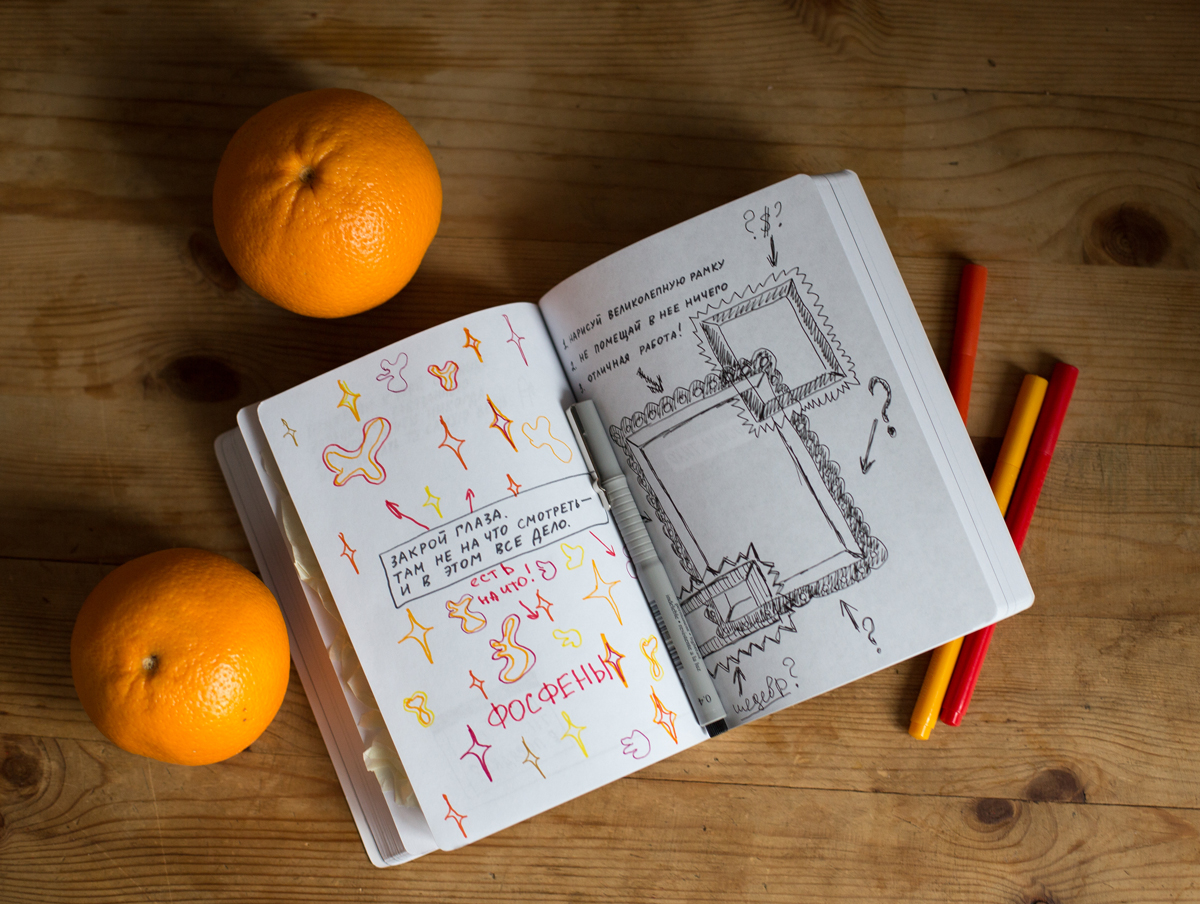 ЗАКРОЙ ГЛАЗА.
ТАМ НЕ НА ЧТО СМОТРЕТЬ—
И В ЭТОМ ВСЕ ДЕЛО.
ЕСТЬ
НА ЧТО!
ФОСФЕНЫ
?$?
1. НАРИСУЙ ВЕЛИКОЛЕПНУЮ РАМКУ
2. НЕ ПОМЕЩАЙ В НЕЕ НИЧЕГО
3. ОТЛИЧНАЯ РАБОТА!
?
?
шедевр?
04